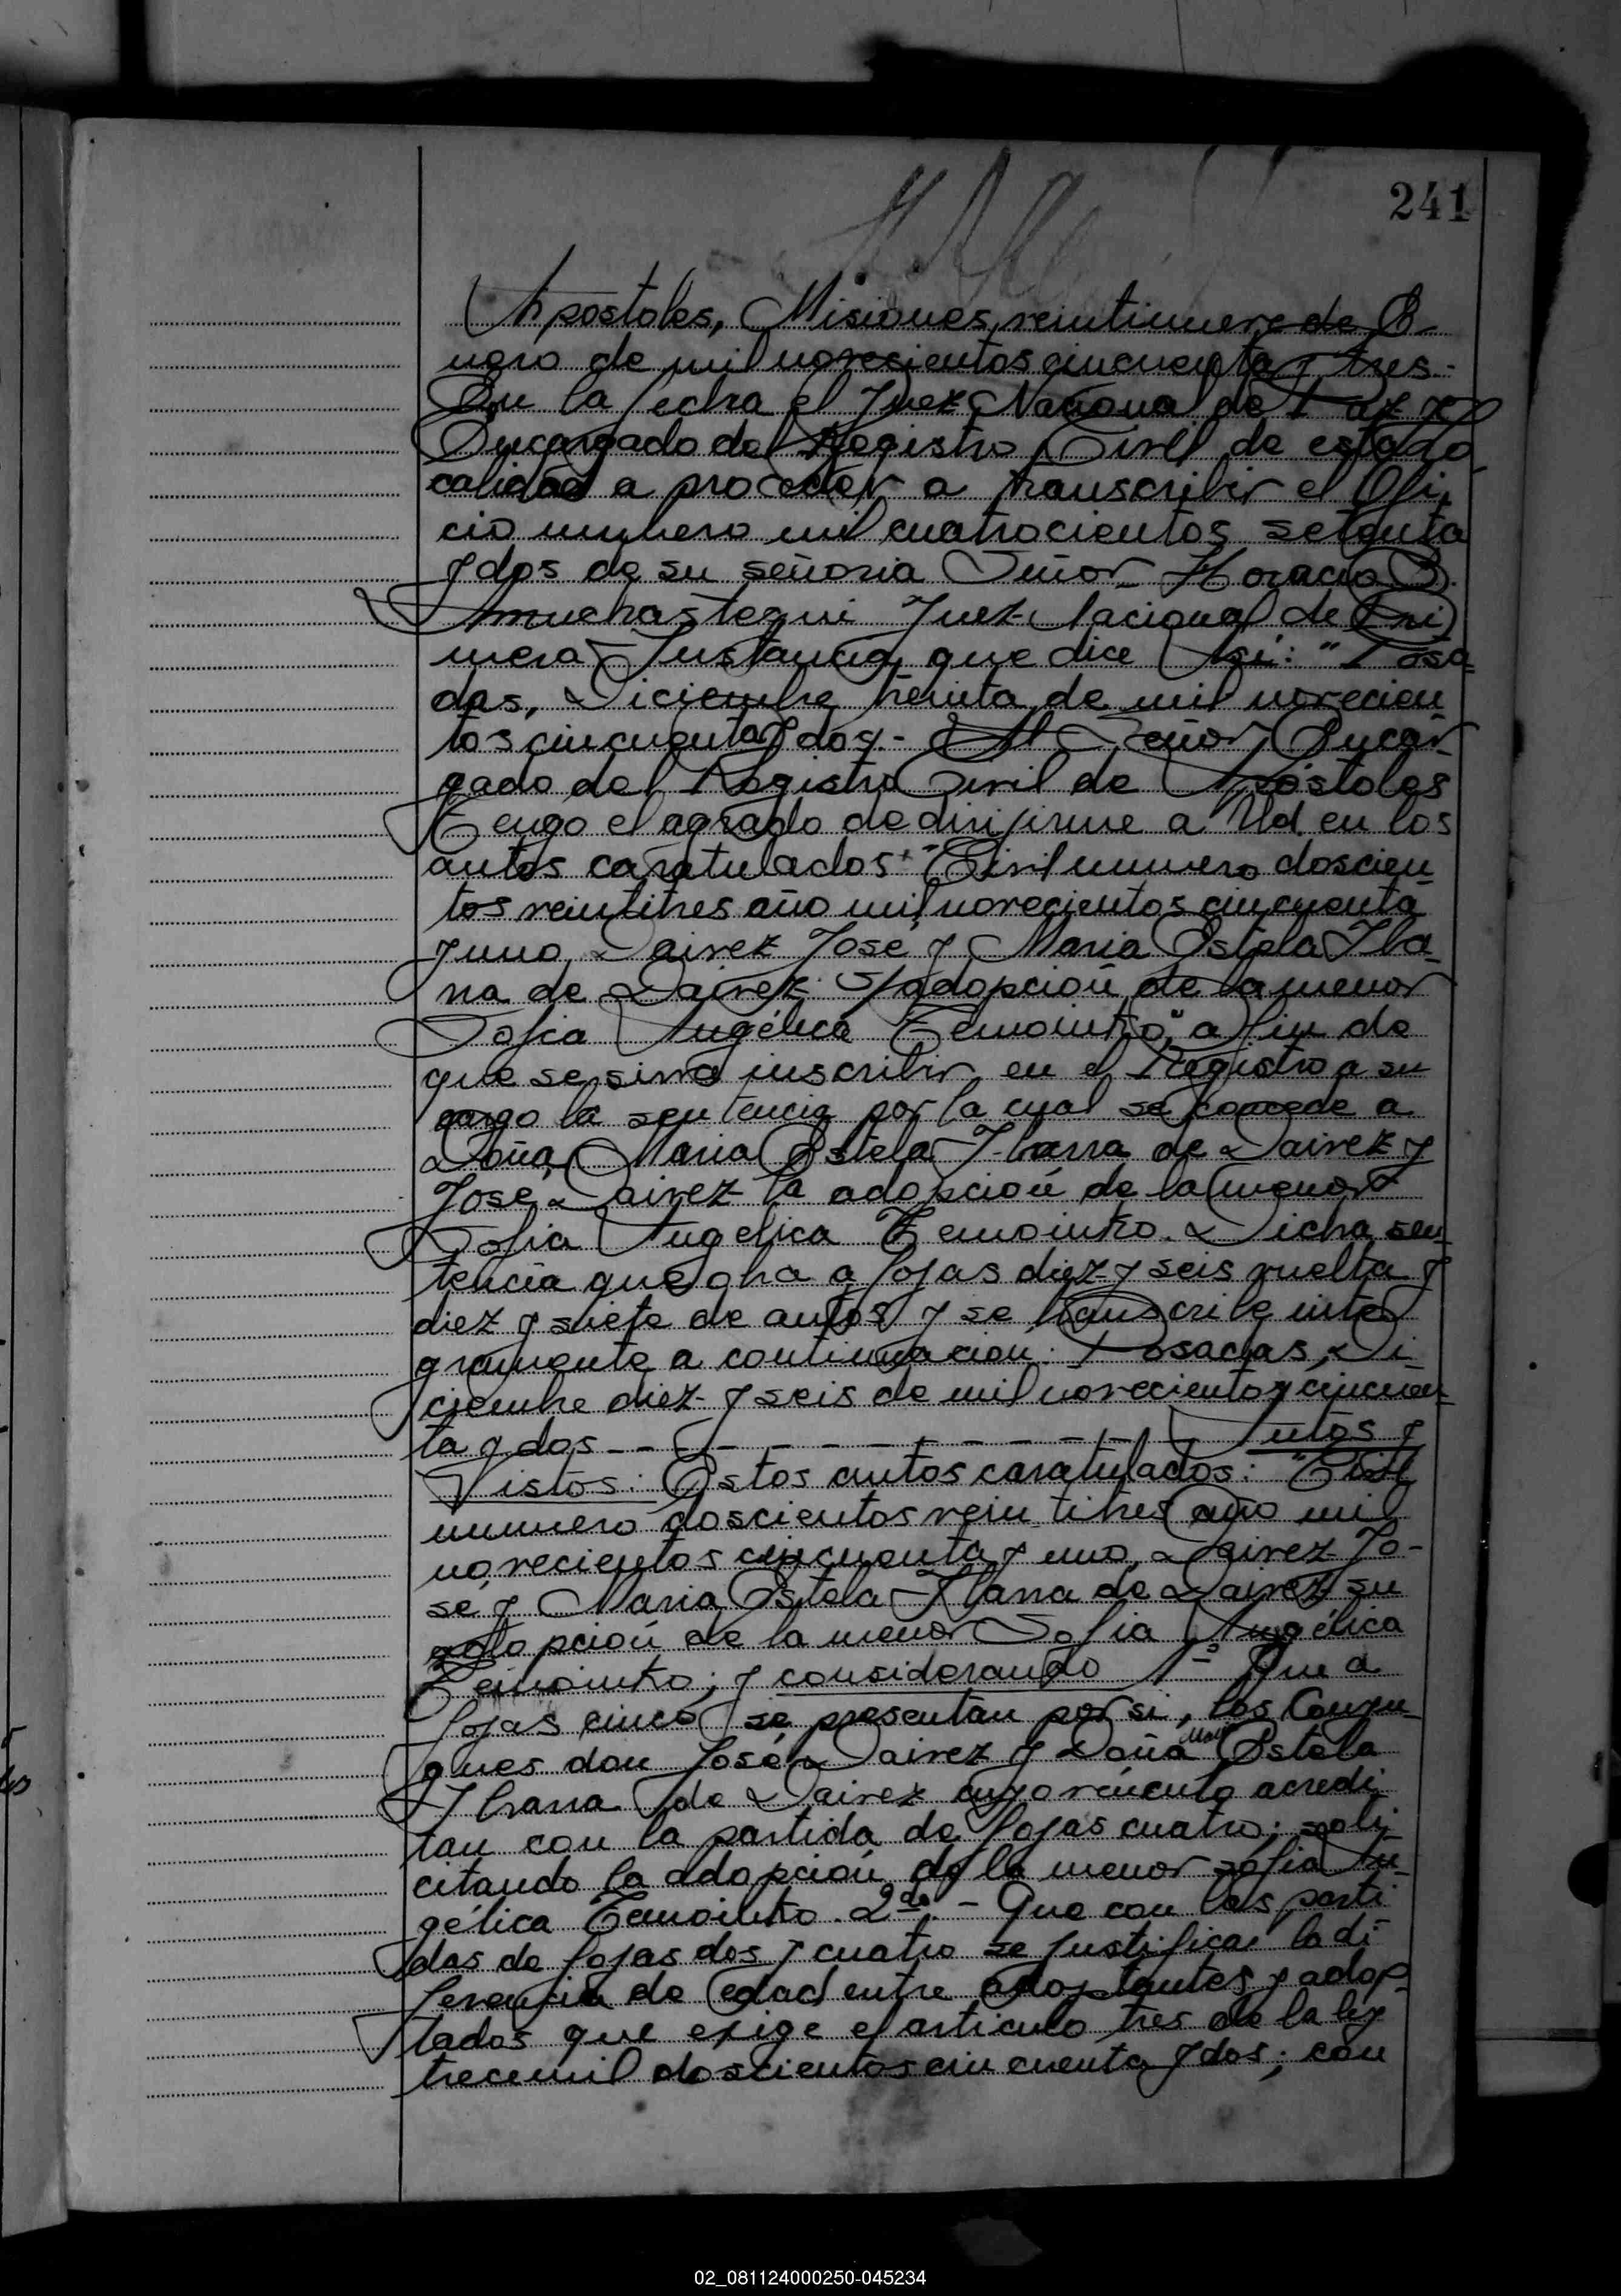 241
Apostoles, Misiones, veintinueve de E-
nero de mil novecientos cincuenta y tres.-
En la fecha el Juez Nacional de Paz y
Encargado del Registro Civil de esta lo
calidad a proceder a transcribir el Ofi-
cio numero mil cuatrocientos setenta
y dos de su señoria Señor Horacio B.
Amuchastegui Juez Nacional de Pri
mera Instancia, que dice Asi: "Posa-
das, Diciembre treinta de mil novecien
tos cincuenta y dos.- Al Señor Encar-
gado del Registro Civil de Apóstoles
Tengo el agrado de dirijirme a Ud. en los
autos caratulados "Civil numero doscien
tos veintitres año mil novecientos cincuenta
y uno, Dairez José y Maria Estela Iba-
rra de Dairez S/adopción de la menor
Sofia Angélica Temointko", a fin de
que se sirva inscribir en el Registro a su
cargo la sentencia por la cual se concede a
Doña Maria Estela Ibarra de Dairez y
José Dairez la adopción de la menor
Sofia Angelica Temointko. Dicha sen-
tencia que obra a fojas diez y seis vuelta y
diez y siete de autos y se transcribe inte
gramente a continuación: Posadas, Di-
ciembre diez y seis de mil novecientos cincuen-
ta y dos - - - - - - - - - - Autos y
Vistos: Estos autos caratulados: "Civil
numero doscientos vein titres año mil
novecientos cincuenta y uno, Dairez Jo-
sé y Maria Estela Ibarra de Dairez su
adopción de la menor Sofia Angélica
Temointko; y considerando 1º Que a
fojas cinco se presentan por si, los Conyu-
gues don José Dairez y Doña Maria Estela
Ibarra de Dairez cuyo vinculo acredi
tan con la partida de fojas cuatro; soli-
citando la adopción de la menor sofia An-
gélica Temointko. 2do.- Que con las parti
das de fojas dos y cuatro se justifica la di-
ferencia de edad entre adoptantes y adop-
tados que exige el articulo tres de la ley
trece mil doscientos cin cuenta y dos; con
02_081124000250-045234